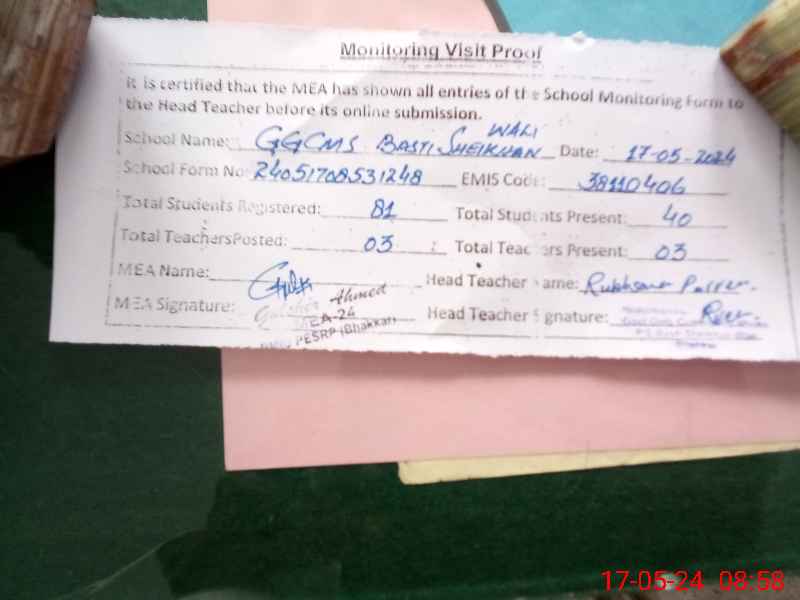 Monitoring Visit Proof
It is certified that the MEA has shown all entries of the School Monitoring Form to
the Head Teacher before its online submission.
School Name: GGCMS BASTI SHEIKHAN WALI Date: 17-05-2024
School Form No: 24051708531248 EMIS Code: 38110406
Total Students Registered: 81 Total Students Present: 40
Total TeachersPosted: 03 Total Teachers Present: 03
MEA Name: Head Teacher Name: Rukhsana
MEA Signature: Ahmed Head Teacher Signature:
MEA-24
PESRP (Bhakkar)
17-05-24 08:58